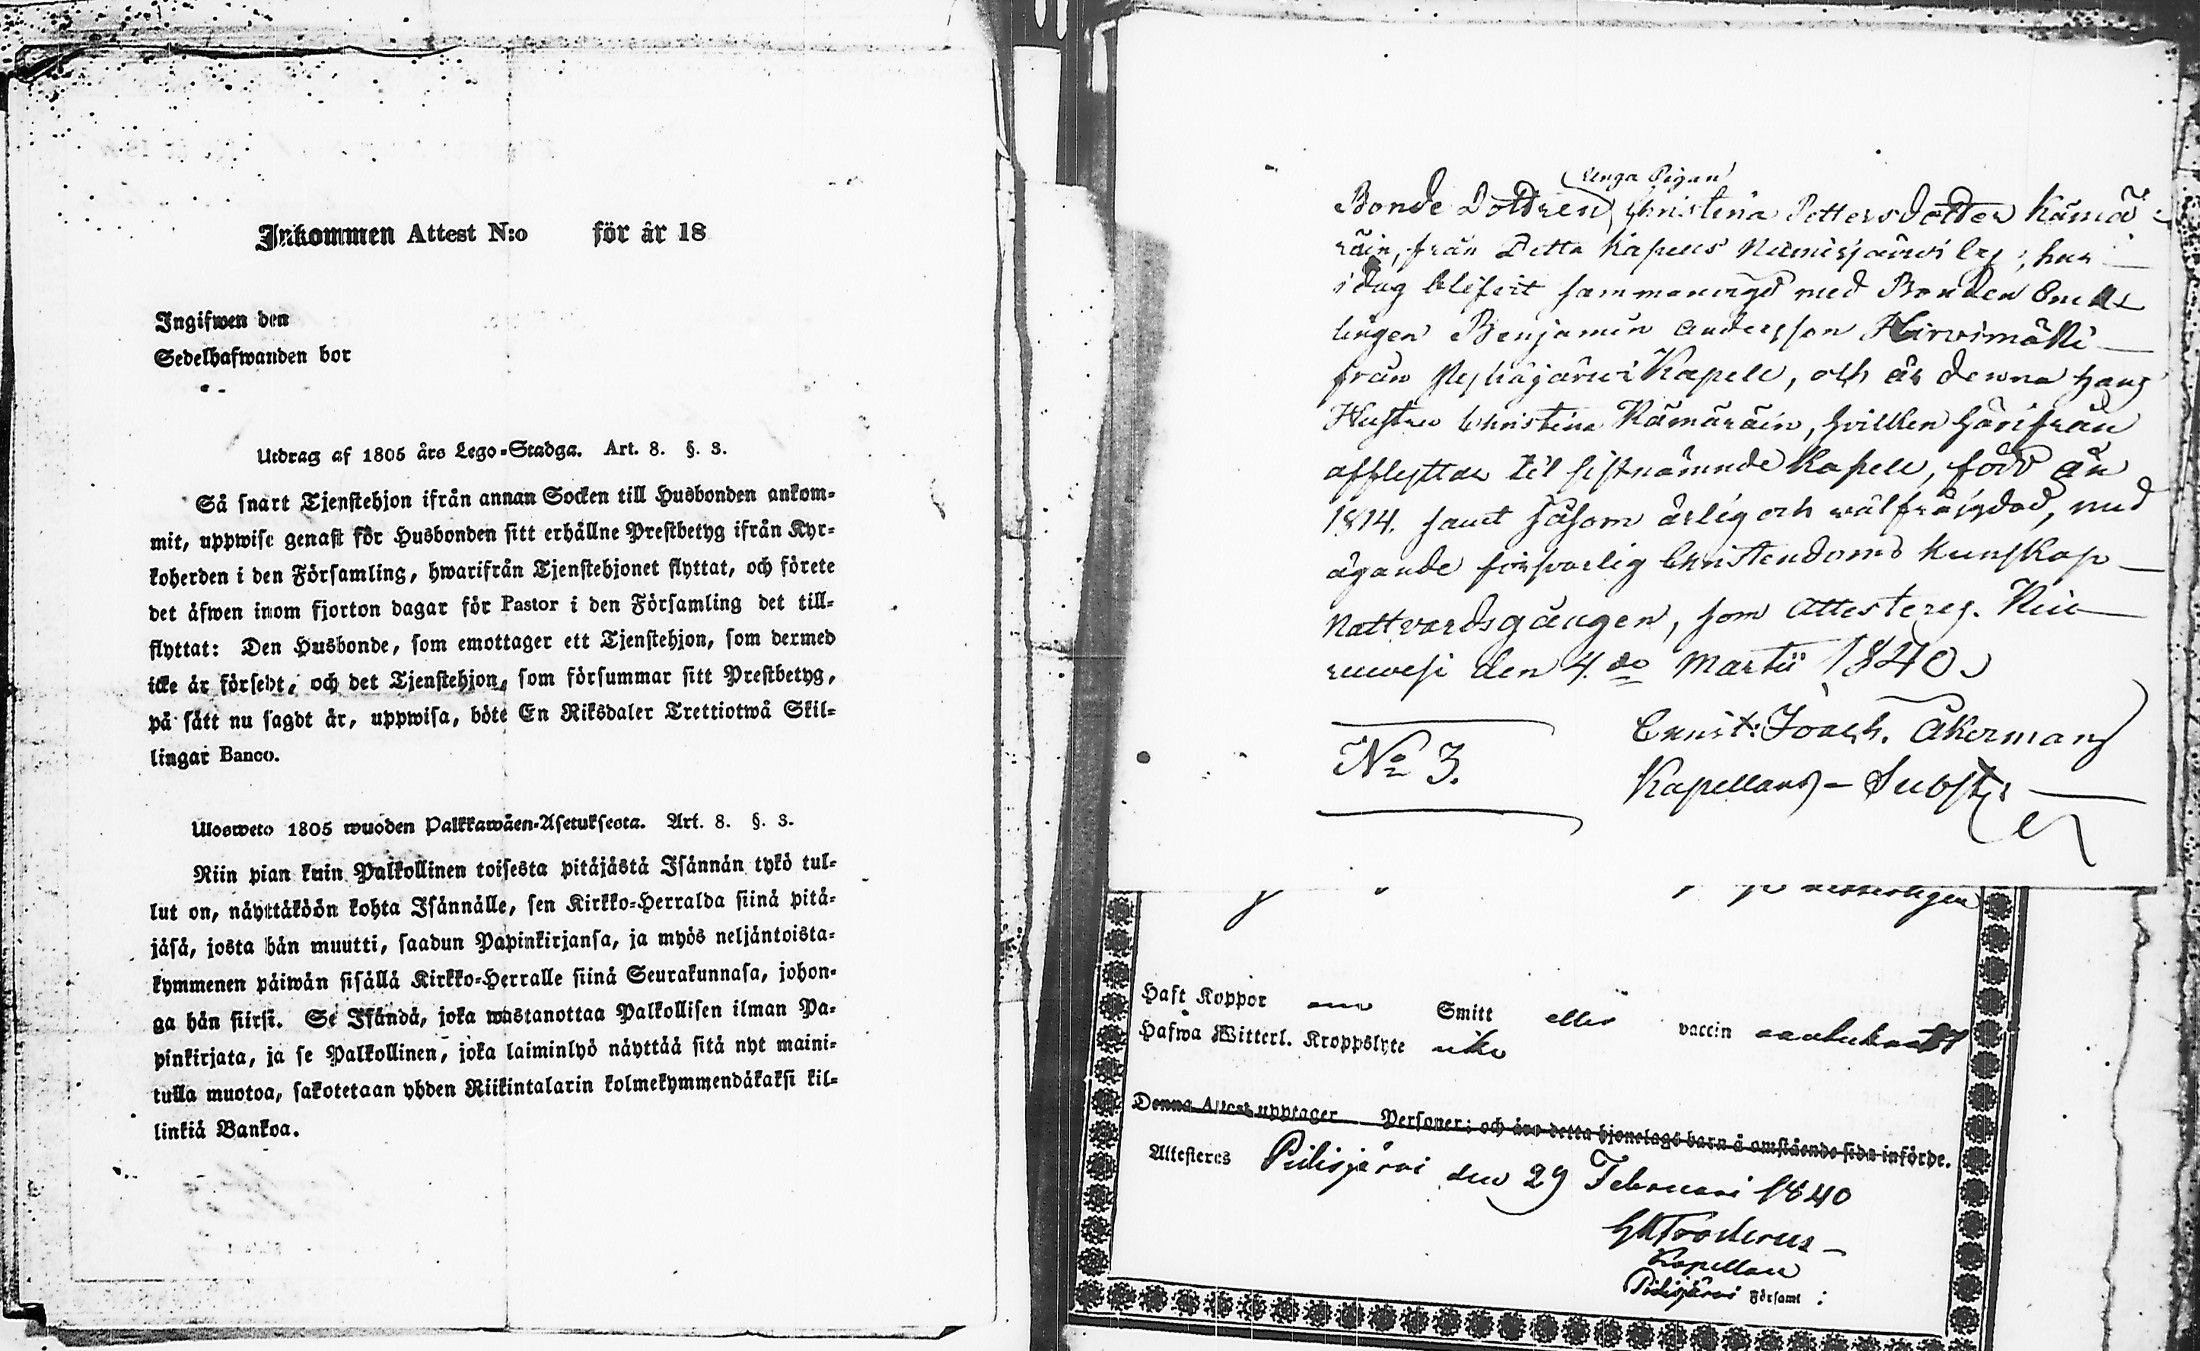 Inkommen Attest N:o för år 18
Ingifwen den
Sedelhafwanden bor
Utdrag af 1805 års Lego-Stadga. Art. 8. §. 3.
Så snart Tjenstehjon ifrån annan Socken till Husbonden ankom-
mit, uppwise genast för Husbonden sitt erhållne Prestbetyg ifrån Kyr-
koherden i den Församling, hwarifrån Tjenstehjonet flyttat, och förete
det äfwen inom fjorton dagar för Pastor i den Församling det till-
flyttat: Den Husbonde, som emottager ett Tjenstehjon, som dermed
icke är försedt, och det Tjenstehjon, som försummar sitt Prestbetyg,
på sätt nu sagdt är, uppwisa, böte En Riksdaler Trettiotwå Skil-
lingar Banco.
Ulosweto 1805 wuoden Palkkawäen-Asetuksesta. Art. 8. §. 3.
Niin pian kuin Palkollinen toisesta pitäjästä Isännän tykö tul-
lut on, näyttäköön kohta Isännälle, sen Kirkko-Herralda siinä pitä-
jäsä, josta hän muutti, saadun Papinkirjansa, ja myös neljäntoista-
kymmenen päiwän sisällä Kirkko-Herralle siinä Seurakunnasa, johon-
ga hän siirsi. Se Isändä, joka wastanottaa Palkollisen ilman Pa-
pinkirjata, ja se Palkollinen, joka laiminlyö näyttää sitä nyt maini-
tulla muotoa, sakotetaan yhden Riikintalarin kolmekymmendäkaksi kil-
linkiä Bankoa.
unga Pigan
Bonde Dottren Christina Pettersdotter Kämä-
räin, från Detta Kapells Nurmisjärwi by, har
i dag blifvit sammanvigd med Bonden
Benjamin Andersson Hirvimäki
från Kapell, och är denna hans
Hustru Christina Kämäräin, hvilken härifrån
afflyttar til sistnämnde Kapell, född år
1814. samt såsom ärlig och välfräjdad, med
ägande försvarlig Christendoms Kunskap
Nattvardsgången, som attesteras. Kiu-
ruvesi den 4.de Martii 1840.
Ernst: Joach. Åkerman
No 3.
Kapellans-Subst:
Haft Koppor Smitt eller vaccin
Hafwa Witterl. Kroppslyte icke
Denna Attest upptager Personer: och äro detta hjonelags barn å omstående sida införde.
Attesteras Pidisjärvi den 29 Februari 1840
Kapellan
Pidisjärvi Församl: